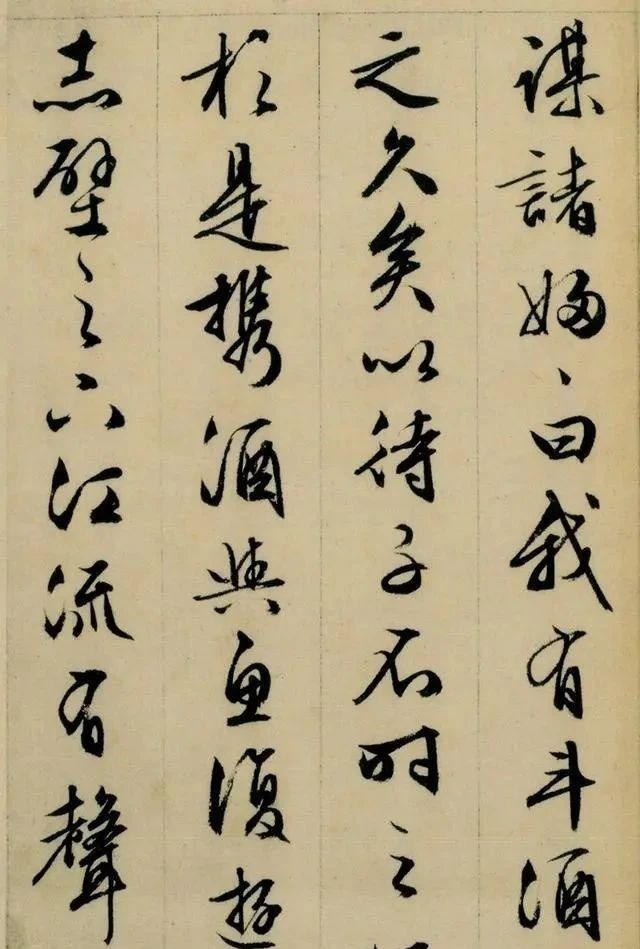 謀諸婦、曰我有斗酒
之久矣以待子不時之
於是携酒與魚復遊
赤壁之下江流有聲